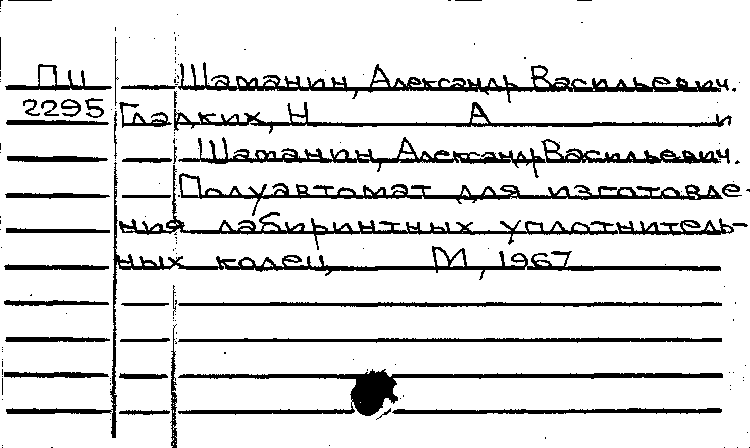 Пц Шаманин, Александр Васильевич.
2295 Гладких, Н А и
Шаманин, Александр Васильевич.
Полуавтомат для изготовле-
ния лабиринтных уплотнитель-
ных колец, М, 1967